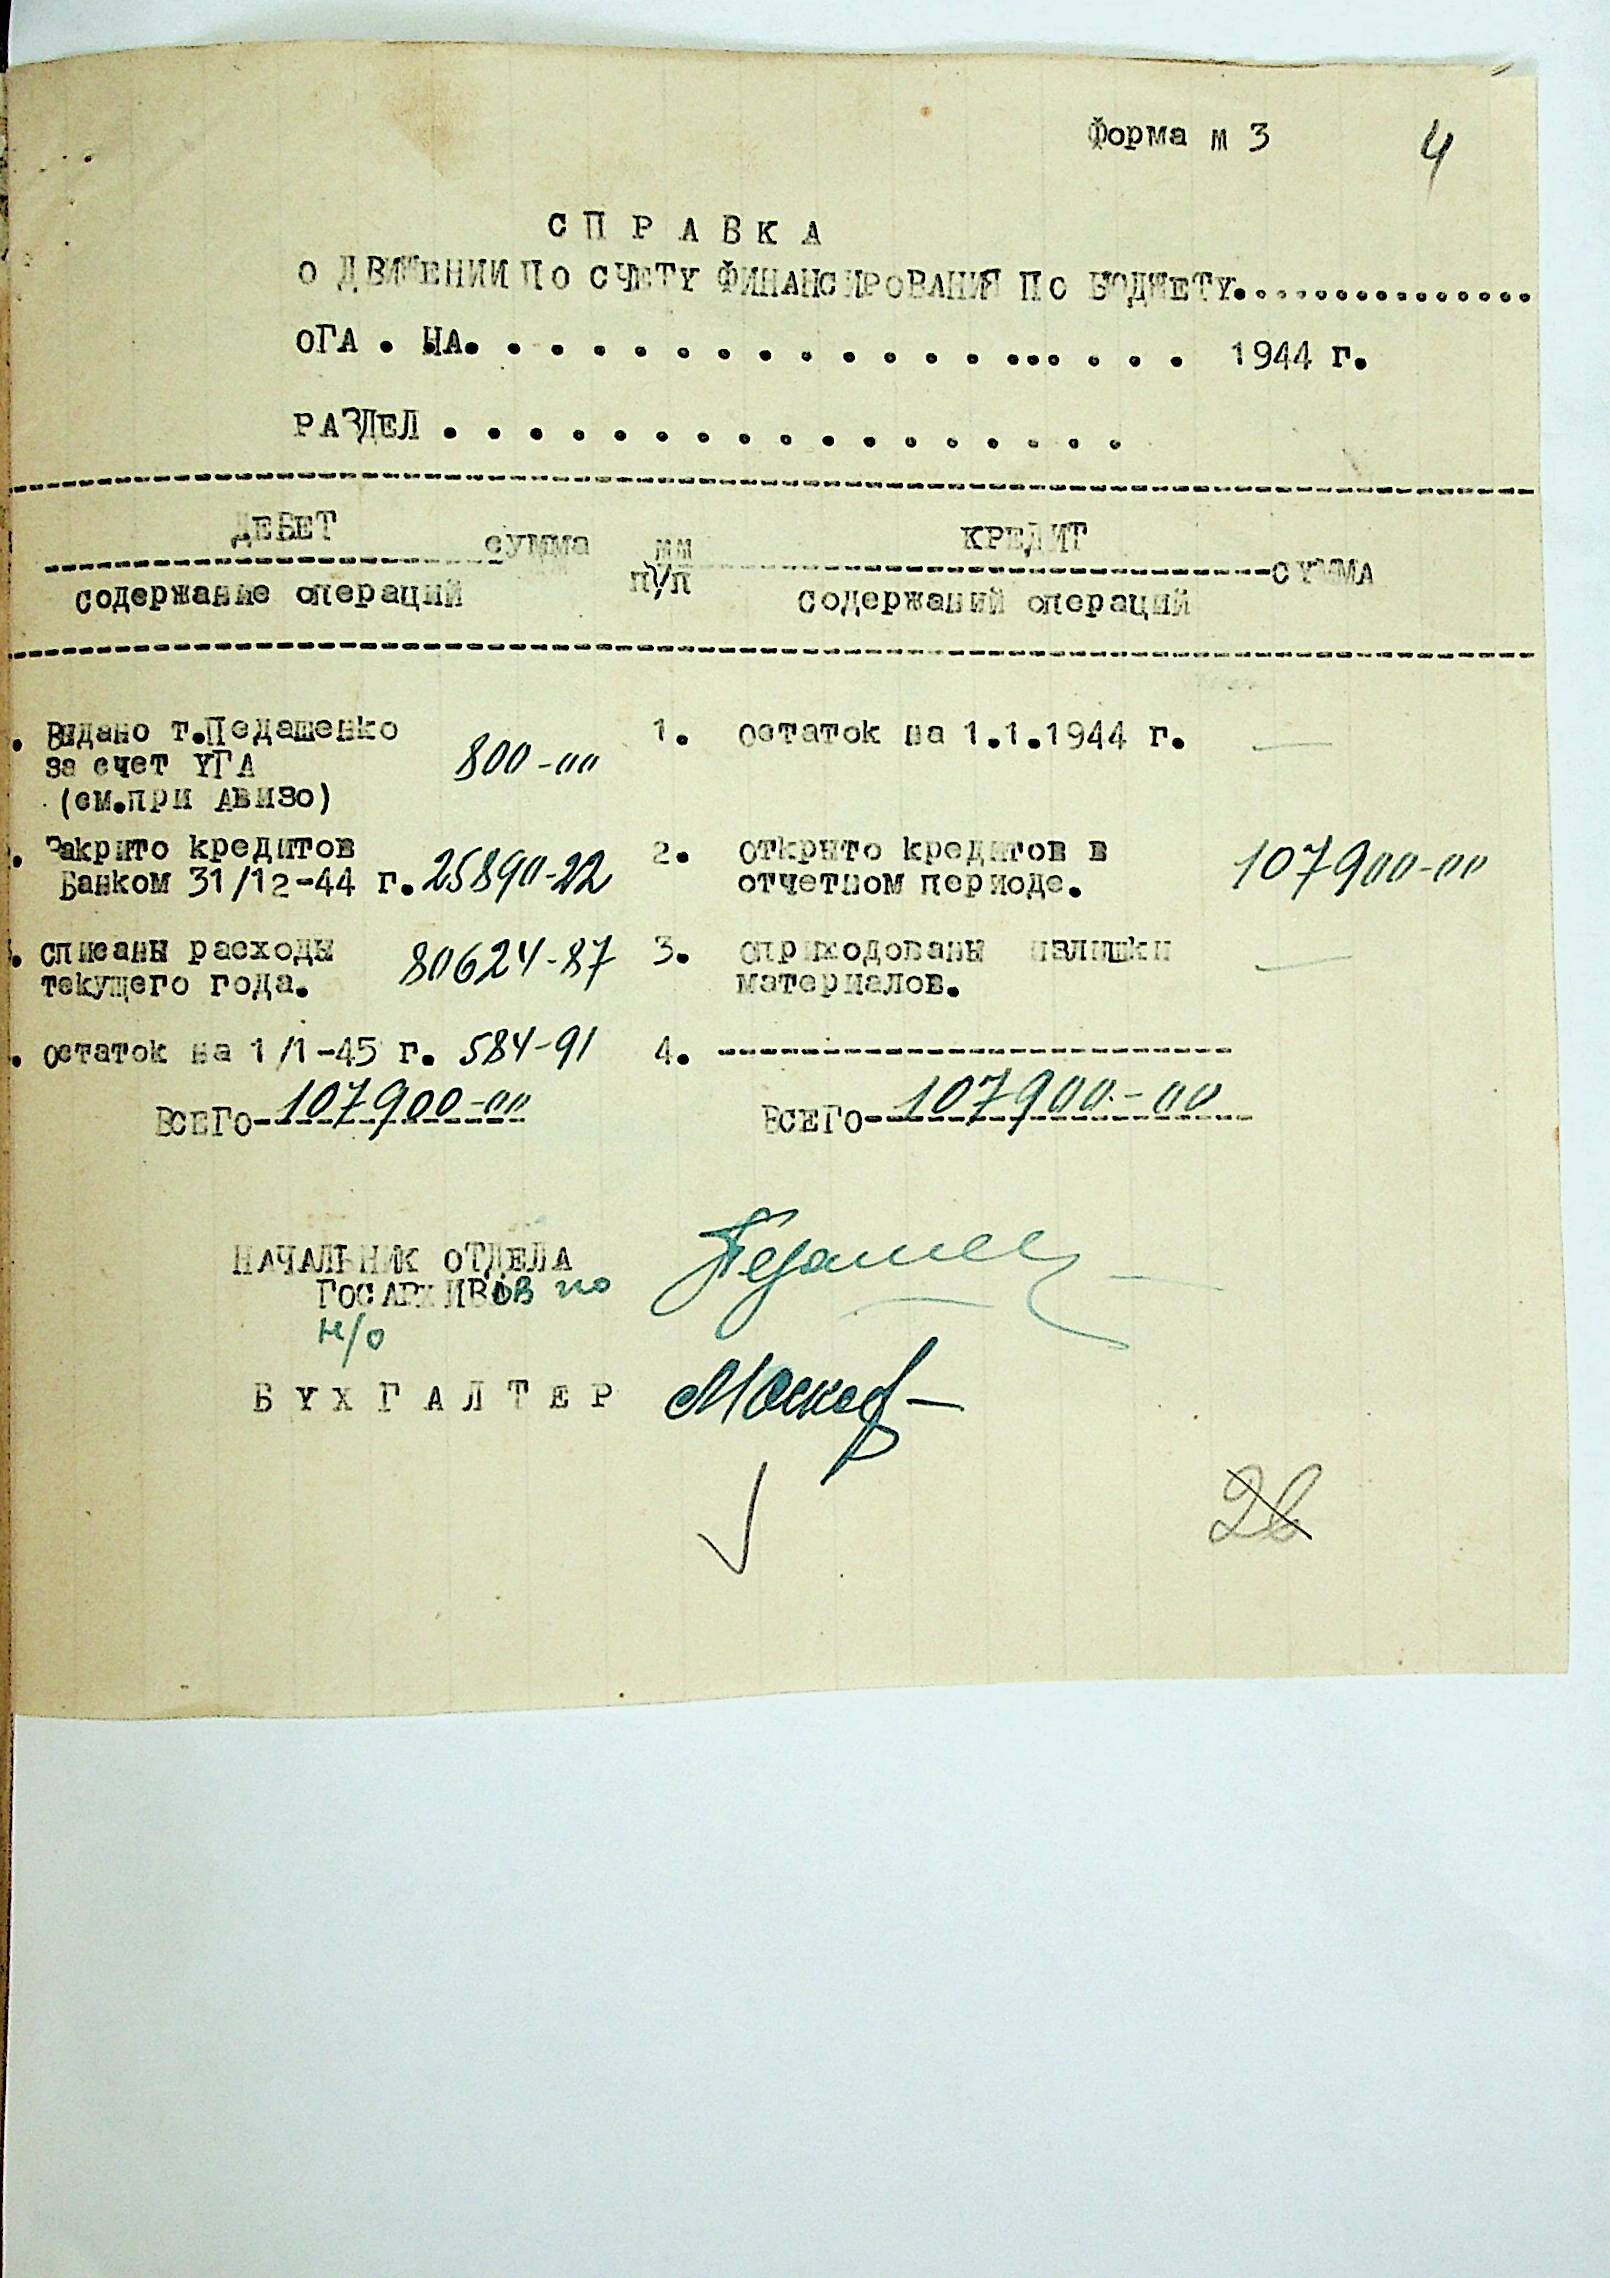 Форма м 3 4
СПРАВКА
О ДВИЖЕНИИ ПО СЧЕТУ ФИНАНСИРОВАНИЯ ПО БЮДЖЕТУ................
ОГА . НА. . . . . . . . . . . . . . . ... . . . 1944 г.
РАЗДЕЛ . . . . . . . . . . . . . . . . .
ДЕБЕТ сумма мм КРЕДИТ СУММА
содержание операций п/п содержаний операций
. Выдано т.Педашенко 1. остаток на 1.1.1944 г. —
за счет УГА 800-00
(см.при АВИЗО)
. Закрыто кредитов 2. открыто кредитов в 107900-00
Банком 31/12-44 г. 25890-22 отчетном периоде.
. списаны расходы 80624-87 3. оприходованы излишки —
текущего года. материалов.
. остаток на 1/1-45 г. 584-91 4. -------------------------
ВСЕГО- 107900-00 ВСЕГО- 107900-00
НАЧАЛЬНИК ОТДЕЛА
ГОСАРХИВОВ по
н/о
БУХГАЛТЕР
26